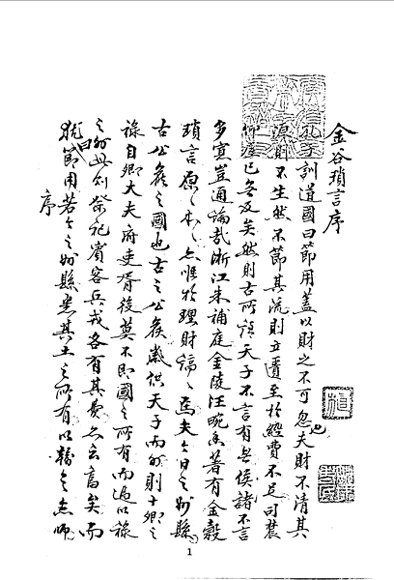 金谷瑣言序
孔子訓道國曰節用蓋以財之不可忽也夫財不清其
源則不生然不節其流則立匱至於經費不足司農
仰屋已無及矣然則古所謂天子不言有無侯諸不言
多寡豈通論哉浙江朱補庭金陵汪畹香著有金穀
瑣言原〻本〻亦唯於理財〻焉夫今日之州縣
古公侯之國也古之公侯歲供天子而外則十卿之
祿自卿大夫府吏胥後莫不即國之所有而以祿
之外此則祭祀賓客兵戎各有其費亦云富矣而
猶曰節用若今之州縣悉其土之所有以輸之京師
序
1